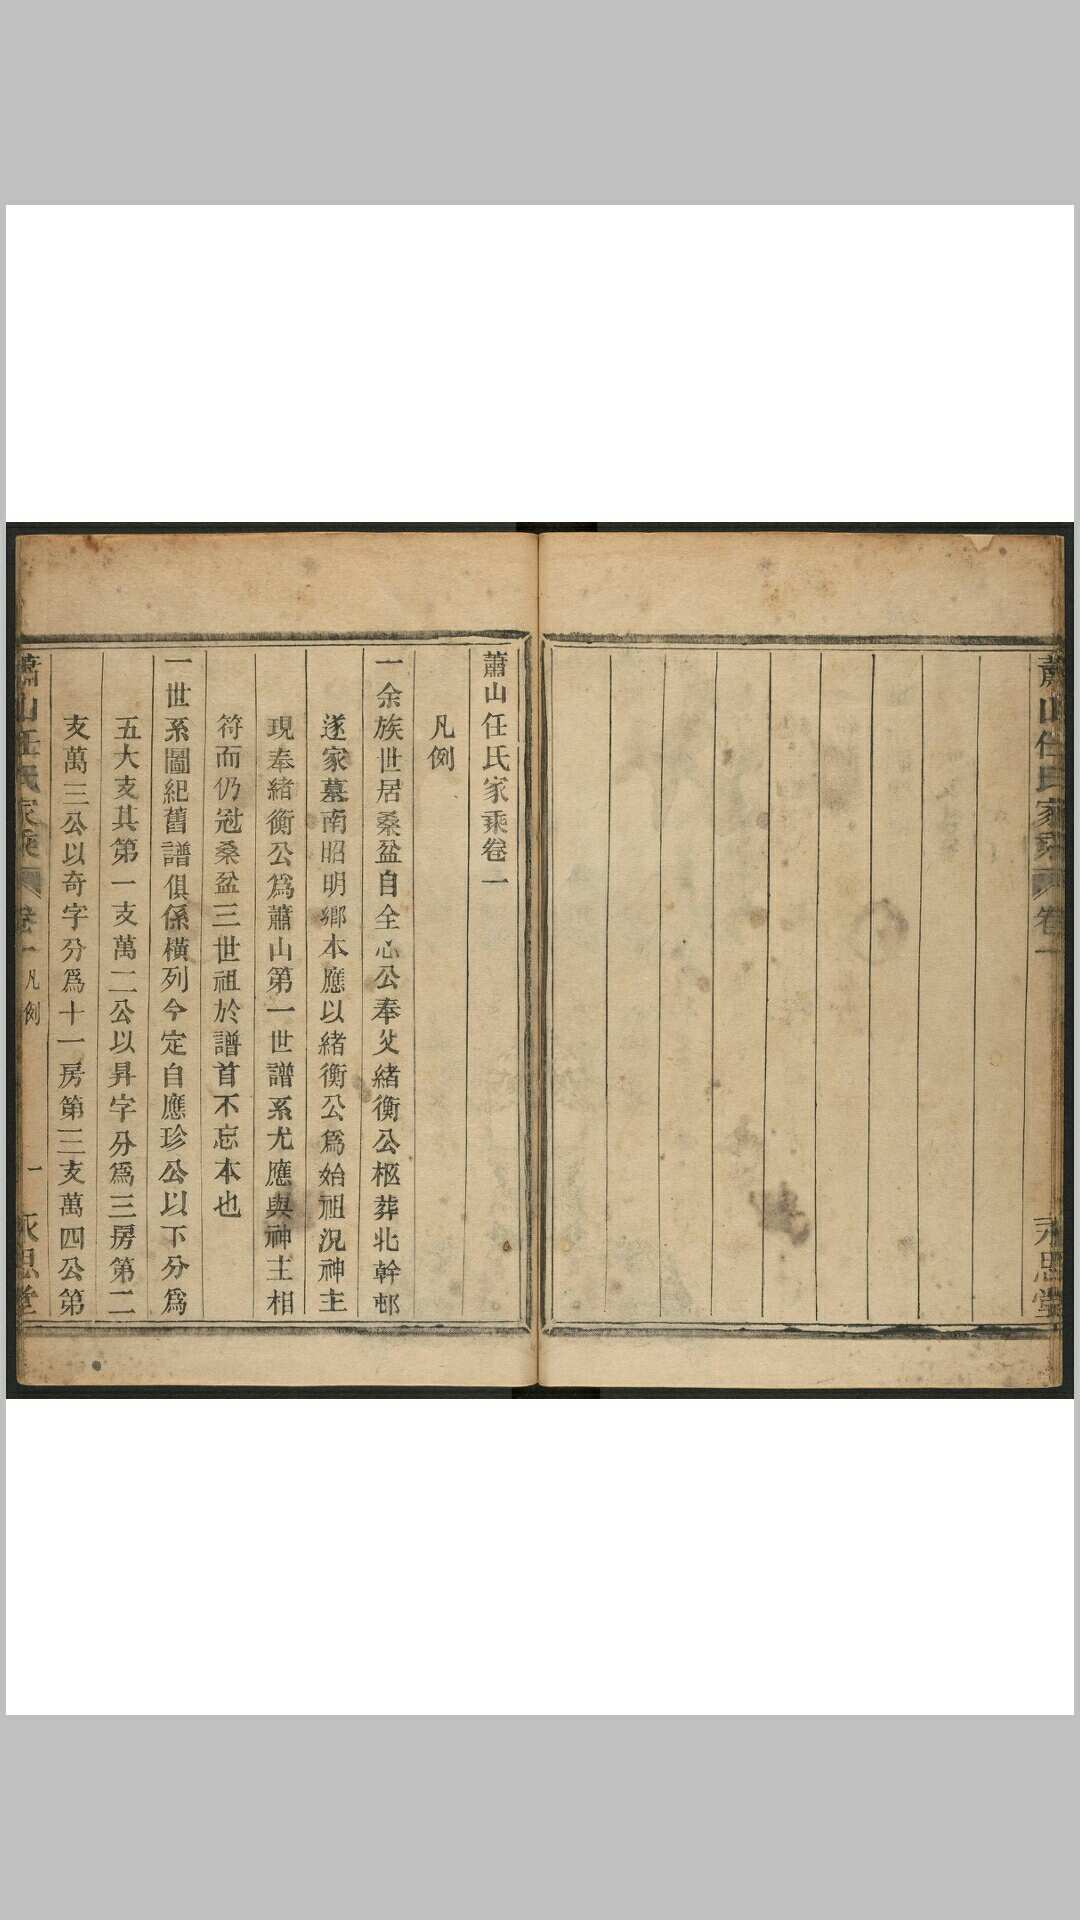 蕭山任氏家乘 卷一
永思堂
蕭山任氏家乘卷一
凡例
一余族世居桑盆自全心公奉父緒衡公柩葬北幹邨
遂家墓南昭明鄉本應以緒衡公爲始祖況神主
現奉緒衡公爲蕭山第一世譜系尤應與神主相
符而仍冠桑盆三世祖於譜首不忘本也
一世系圖紀舊譜俱係橫列今定自應珍公以下分爲
五大支其第一支萬二公以昇字分爲三房第二
支萬三公以奇字分爲十一房第三支萬四公第
蕭山任氏家乘 卷一 凡例
一
永思堂